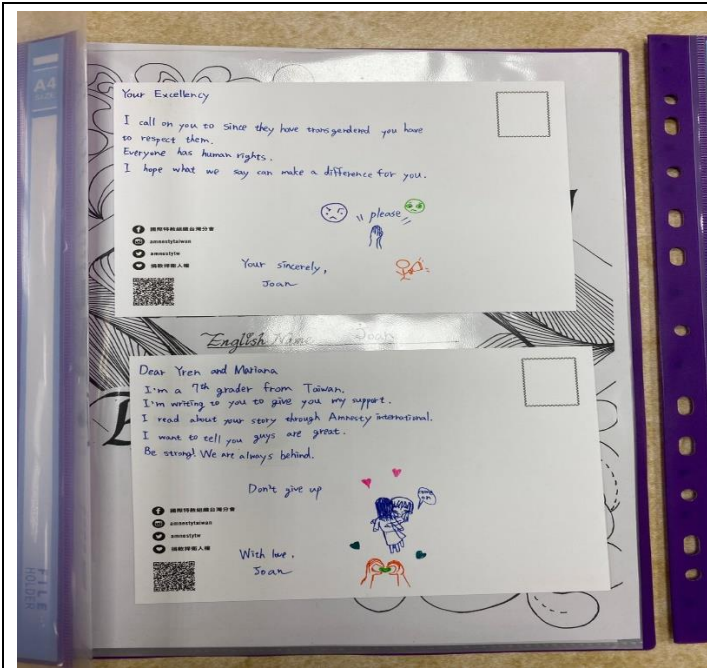 A4
Your Excellency
I call on you to since they have transgenderd you have
to respect them.
Everyone has human rights.
I hope what we say can make a difference for you.
please
國際特赦組織台灣分會
amnestytaiwan
amnestytw
Your sincerely,
Joan
English Name Joan
Dear Yren and Mariana
I'm a 7th grader from Taiwan.
I'm writing to you to give you my support.
I read about your story through Amnesty international.
I want to tell you guys are great.
Be strong! We are always behind.
Don't give up
國際特赦組織台灣分會
amnestytaiwan
amnestytw
With love,
Joan
FILE
HOLDER